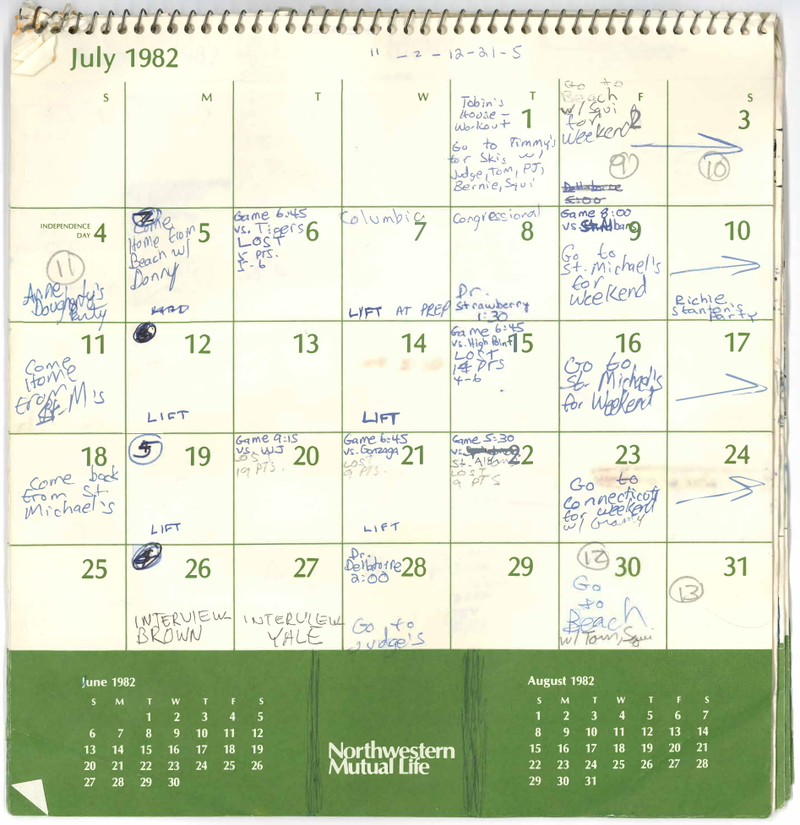 July 1982
" - 2 - 12-21-5
S M T W T F S
Tobin's
House -
Workout
1
Go to Timmy's
for Skis w/
Judge, Tom, PJ,
Bernie, Squi
Go to
Beach
w/ Squi
for
Weekend
2
9
3
10
INDEPENDENCE
DAY 4
11
Anne
Dougherty's
Party
5
Come
Home from
Beach w/
Donny
Game 6:45
vs. Tigers
LOST
5 PTS.
5-6
6
Columbia
7
LIFT AT PREP
Congressional
8
Dr.
Strawberry
1:30
Game 8:00
vs.
9
Go to
St. Michael's
for
Weekend
10
Richie
Stanton's
Party
11
Come
Home
from
St. M's
12
LIFT
13
14
LIFT
Game 6:45
vs. High Point
LOST
15
14 PTS
4-6
16
Go to
St. Michael's
for Weekend
17
18
Come back
from St.
Michael's
19
LIFT
Game 9:15
vs. WJ
LOST
19 PTS.
20
Game 6:45
vs. Gonzaga
LOST
9 PTS.
21
LIFT
Game 5:30
vs.
22
LOST
9 PTS
23
Go to
Connecticut
for weekend
w/ Granny
24
25
26
INTERVIEW
BROWN
27
INTERVIEW
YALE
Dr.
Dellatorre
2:00
28
Go to
Judge's
29
12
30
Go
to
Beach
w/ Tom, Squi
31
13
June 1982
S M T W T F S
1 2 3 4 5
6 7 8 9 10 11 12
13 14 15 16 17 18 19
20 21 22 23 24 25 26
27 28 29 30
Northwestern
Mutual Life
August 1982
S M T W T F S
1 2 3 4 5 6 7
8 9 10 11 12 13 14
15 16 17 18 19 20 21
22 23 24 25 26 27 28
29 30 31